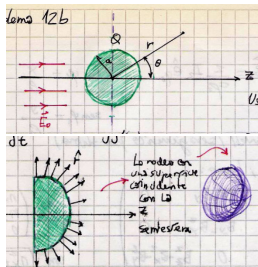 dema 12b
Q
a
r
θ
z
E₀
Us
dt
US
r̂
Lo rodeo con
una superficie
coincidente
con la
semiesfera
z